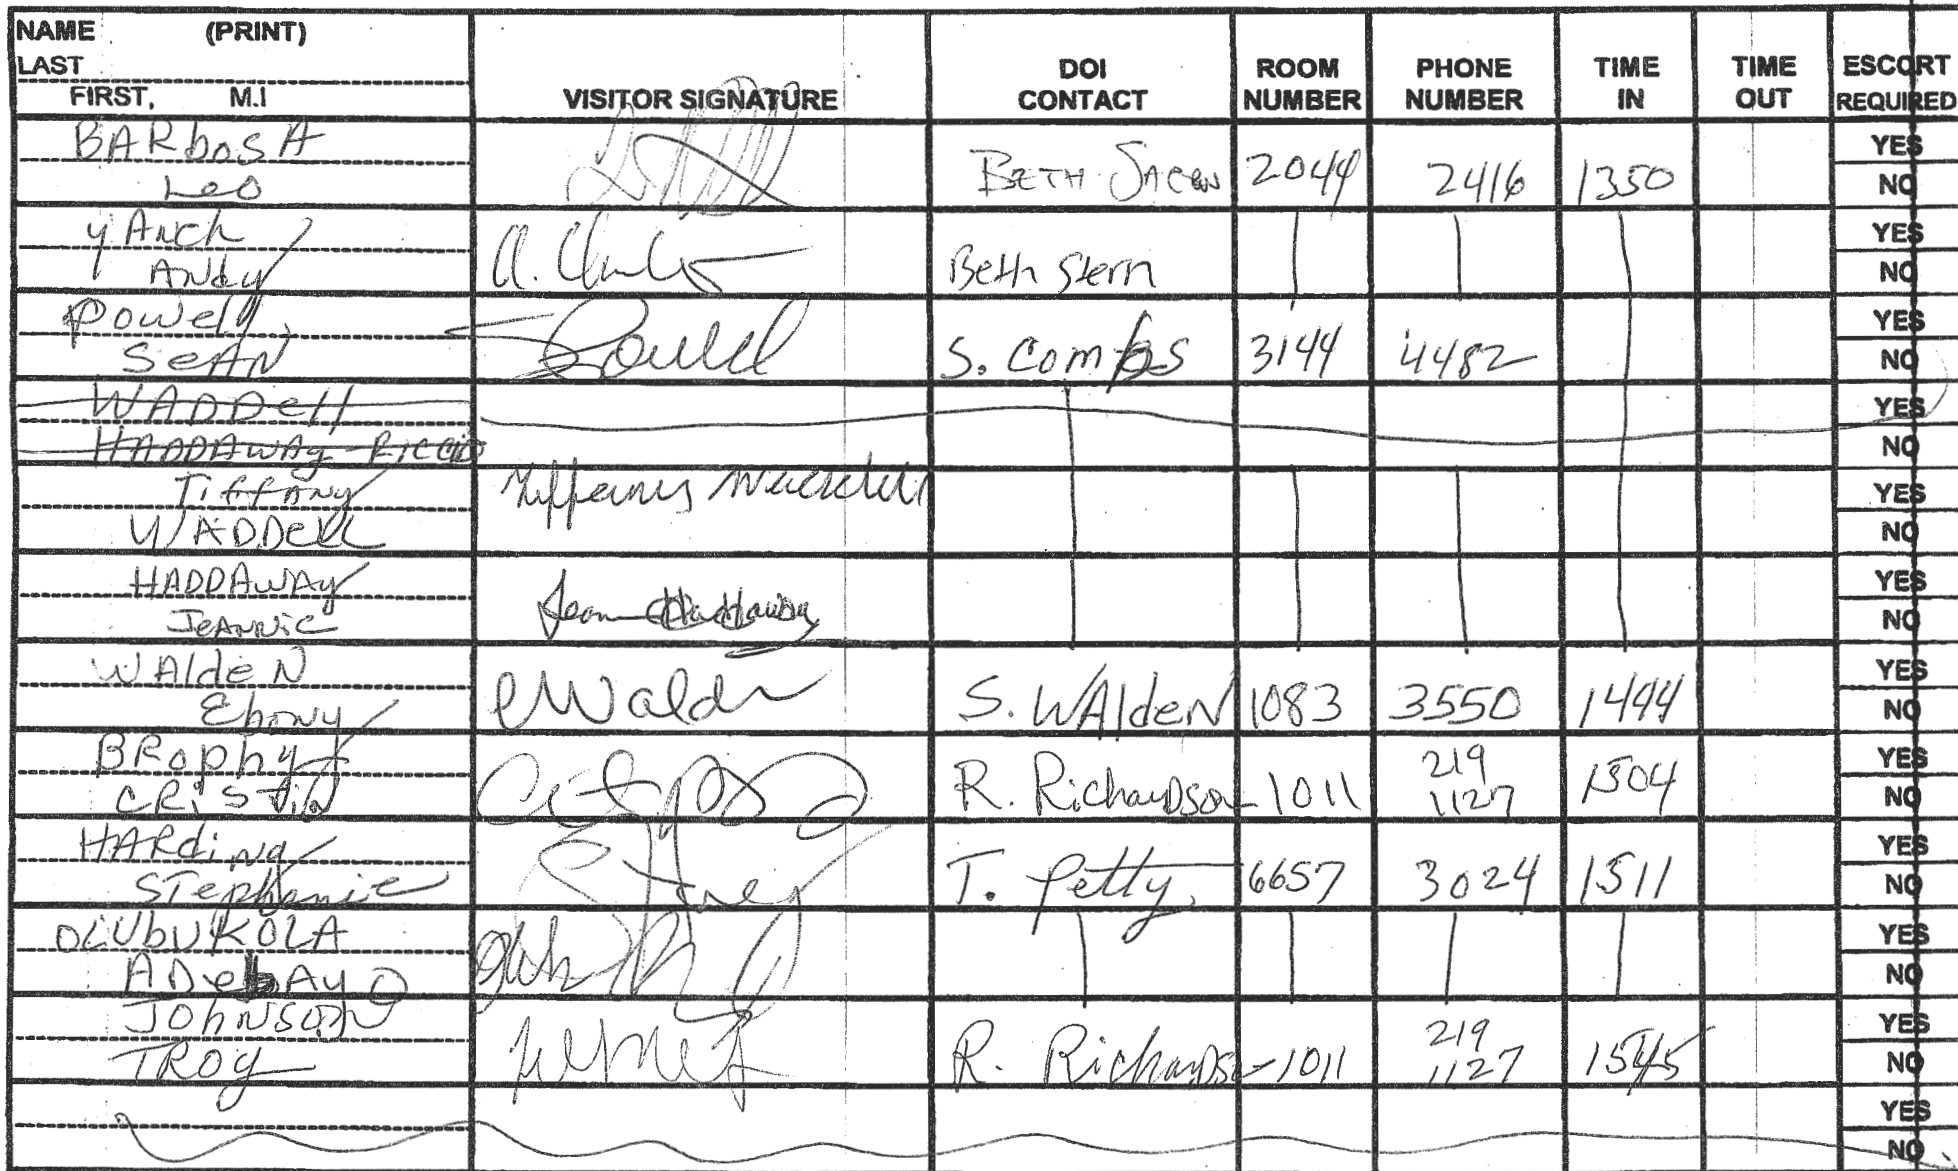 NAME (PRINT)
LAST
FIRST, M.I
VISITOR SIGNATURE
DOI CONTACT
ROOM NUMBER
PHONE NUMBER
TIME IN
TIME OUT
ESCORT REQUIRED
BARbosA
Leo
BETH 2044 2416 1350
YES
NO
yANch
ANdy
Beth Stern
YES
NO
Powell,
SeAN
S. Combs 3144 4482
YES
NO
WADDell
HADDAWAy-Riccio
YES
NO
TiffANy
WADDell
Tiffany Waddell
YES
NO
HADDAWAy
JeANNie
Jeannie Haddaway
YES
NO
WAldeN
EboNy
EWalden
S. WAldeN 1083 3550 1444
YES
NO
BRophy
CRiStiN
R. Richardson 1011 219 1127 1504
YES
NO
HARdiNg
STephanie
T. Petty 6657 3024 1511
YES
NO
OLUbUKOLA
ADebAyo
YES
NO
JohNSoN
TROy
R. Richardson 1011 219 1127 1545
YES
NO
YES
NO